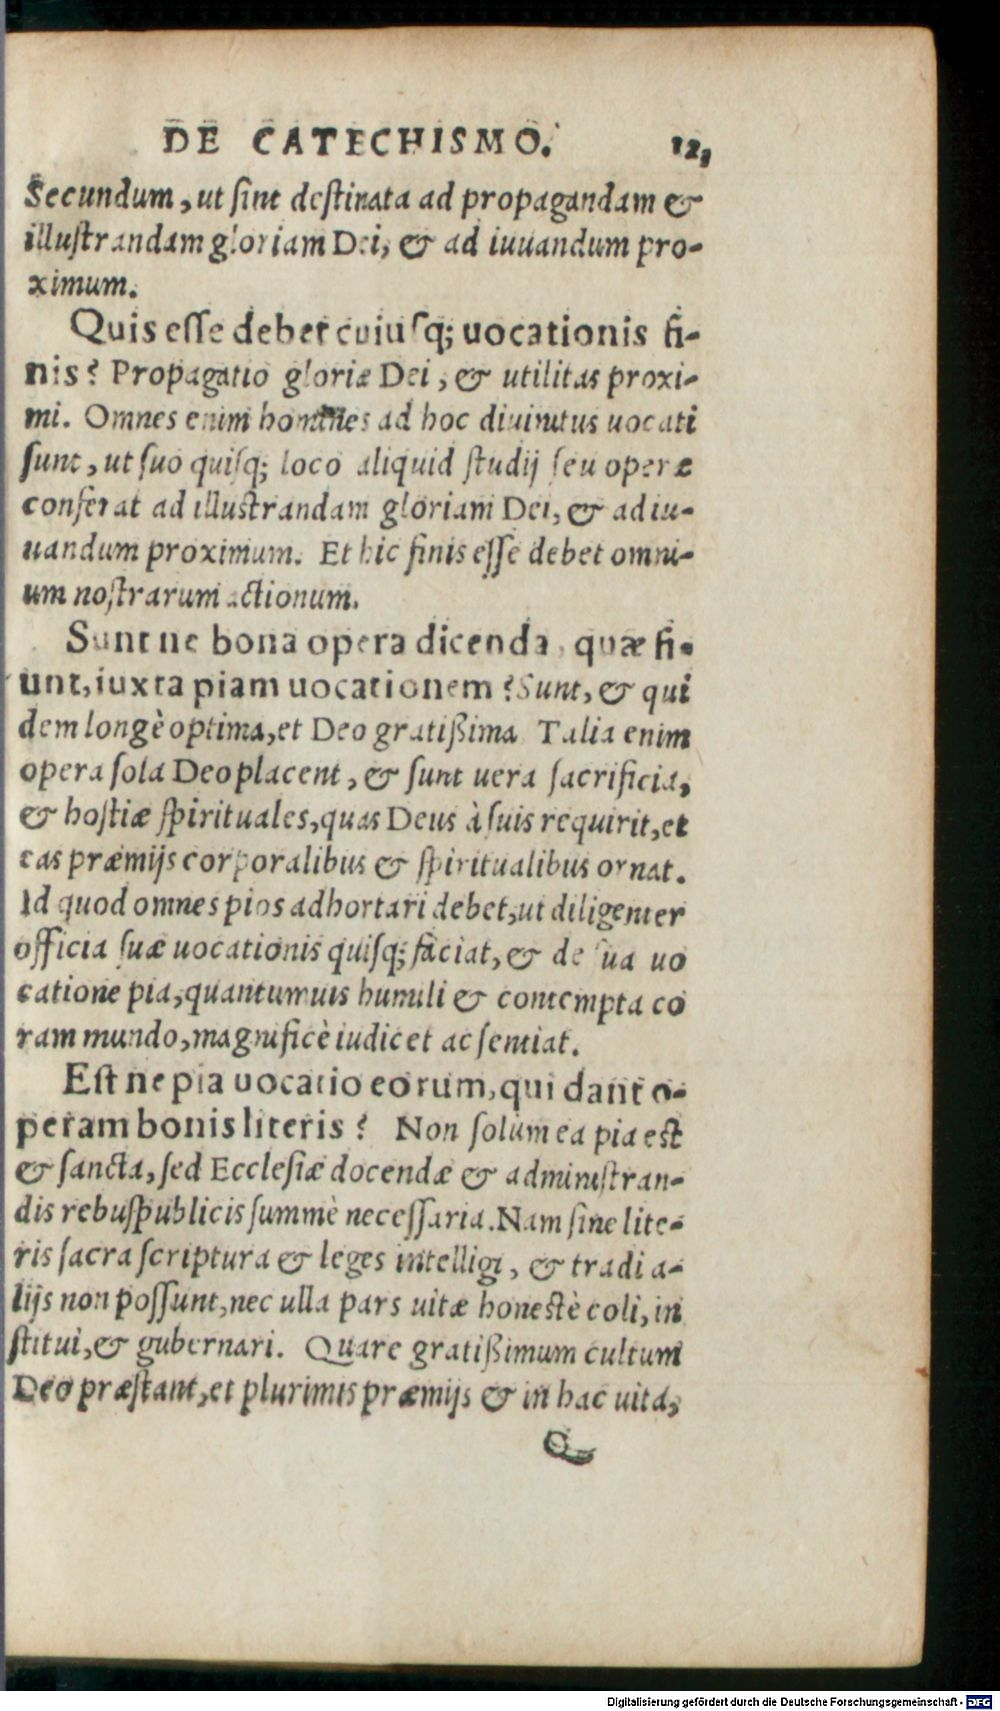 DE CATECHISMO.
Secundum, ut sint destinata ad propagandam &
illustrandam gloriam Dei, & ad iuuandum pro-
ximum.
Quis esse debet cuiusq; uocationis fi-
nis? Propagatio gloriæ Dei, & utilitas proxi-
mi. Omnes enim homines ad hoc diuinitus uocati
sunt, ut suo quisq; loco aliquid studij seu operæ
conferat ad illustrandam gloriam Dei, & ad iu-
uandum proximum. Et hic finis esse debet omni-
um nostrarum actionum.
Sunt ne bona opera dicenda, quæ fi-
unt, iuxta piam uocationem? Sunt, & qui
dem longè optima, et Deo gratißima Talia enim
opera sola Deo placent, & sunt uera sacrificia,
& hostiæ spirituales, quas Deus à suis requirit, et
eas præmijs corporalibus & spiritualibus ornat.
Id quod omnes pios adhortari debet, ut diligenter
officia suæ uocationis quisq; faciat, & de sua uo
catione pia, quantumuis humili & contempta co
ram mundo, magnificè iudicet ac sentiat.
Est ne pia uocatio eorum, qui dant o-
peram bonis literis? Non solum ea pia est
& sancta, sed Ecclesiæ docendæ & administran-
dis rebuspublicis summè necessaria. Nam sine lite-
ris sacra scriptura & leges intelligi, & tradi a-
lijs non possunt, nec ulla pars uitæ honestè coli, in
stitui, & gubernari. Quare gratißimum cultum
Deo præstant, et plurimis præmijs & in hac uita,
Q
Digitalisierung gefördert durch die Deutsche Forschungsgemeinschaft - DFG